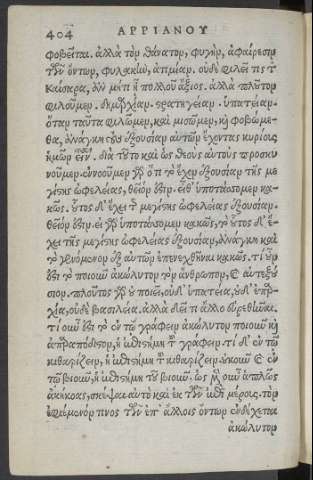 404 ΑΡΡΙΑΝΟΥ
φοβεῖται. ἀλλὰ τὸν θάνατον, φυγὴν, ἀφαίρεσιν
τῶν ὄντων, φυλακὴν, ἀτιμίαν. οὐδὲ φιλεῖ τις τ
Καίσαρα, ἂν μή τι ᾖ πολλοῦ ἄξιος. ἀλλὰ πλοῦτον
φιλοῦμεν. δημαρχίαν. στρατηγείαν. ὑπατείαν.
ὅταν ταῦτα φιλῶμεν, καὶ μισῶμεν, κὴ φοβώμε-
θα, ἀνάγκη τοὺς ἐξουσίαν αὐτῶν ἔχοντας κυρίους
ἡμῶν εἶναι. διὰ τοῦτο καὶ ὡς θεοὺς αὐτοὺς προσκυ
νοῦμεν. ἐννοοῦμεν γὰρ ὅτι τὸ ἔχον ἐξουσίαν τῆς με
γίστης ὠφελείας, θεῖόν ἐστιν. εἶθ' ὑποτάσσομεν κα-
κῶς. οὗτος δ' ἔχει τ μεγίστης ὠφελείας ἐξουσίαν.
θεῖόν ἐστιν. εἰ γὰρ ὑποτάσσομεν κακῶς, τὸ οὗτος δ' ἔ-
χει τῆς μεγίστης ὠφελείας ἐξουσίαν, ἀνάγκη καὶ
τὸ γενόμενον ἐξ αὐτῶν ἐπενεχθῆναι κακῶς. τί οὖν
ἐστι τὸ ποιοῦν ἀκώλυτον τὸν ἄνθρωπον, καὶ αὐτεξού
σιον. πλοῦτος γὰρ οὐ ποιεῖ, οὐδ' ὑπατεία, οὐδ' ἐπαρ-
χία, οὐδὲ βασιλεία. ἀλλὰ δεῖ τι ἄλλο εὑρεθῆναι.
τί οὖν ἐστι τὸ ἐν τῷ γράφειν ἀκώλυτον ποιοῦν κὴ
ἀπαραπόδιστον, ἡ ἐπιστήμη τ γράφειν. τί δ' ἐν τῷ
κιθαρίζειν, ἡ ἐπιστήμη τ κιθαρίζειν. οὐκοῦν καὶ ἐν
τῷ βιοῦν, ἡ ἐπιστήμη τοῦ βιοῦν. ὡς μὲν οὖν ἁπλῶς
ἀκήκοας, σκέψαι αὐτὸ καὶ ἐκ τῶν ἐπὶ μέρους. τὸν
ἐφιέμενόν τινος τῶν ἐπ' ἄλλοις ὄντων ἐνδέχεται
ἀκώλυτον